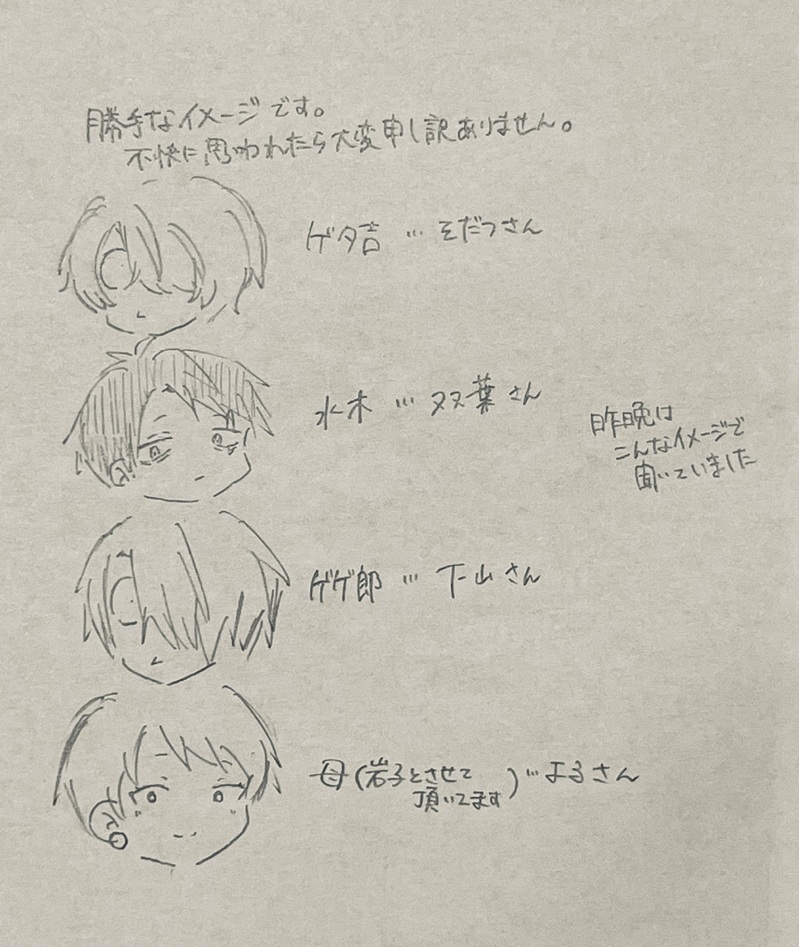 勝手なイメージです。
不快に思われたら大変申し訳ありません。
ゲタ吉…そだつさん
水木…双葉さん
昨晩は
こんなイメージで
聞いていました
ゲゲ郎…下山さん
母(岩子とさせて
頂いてます)…よるさん